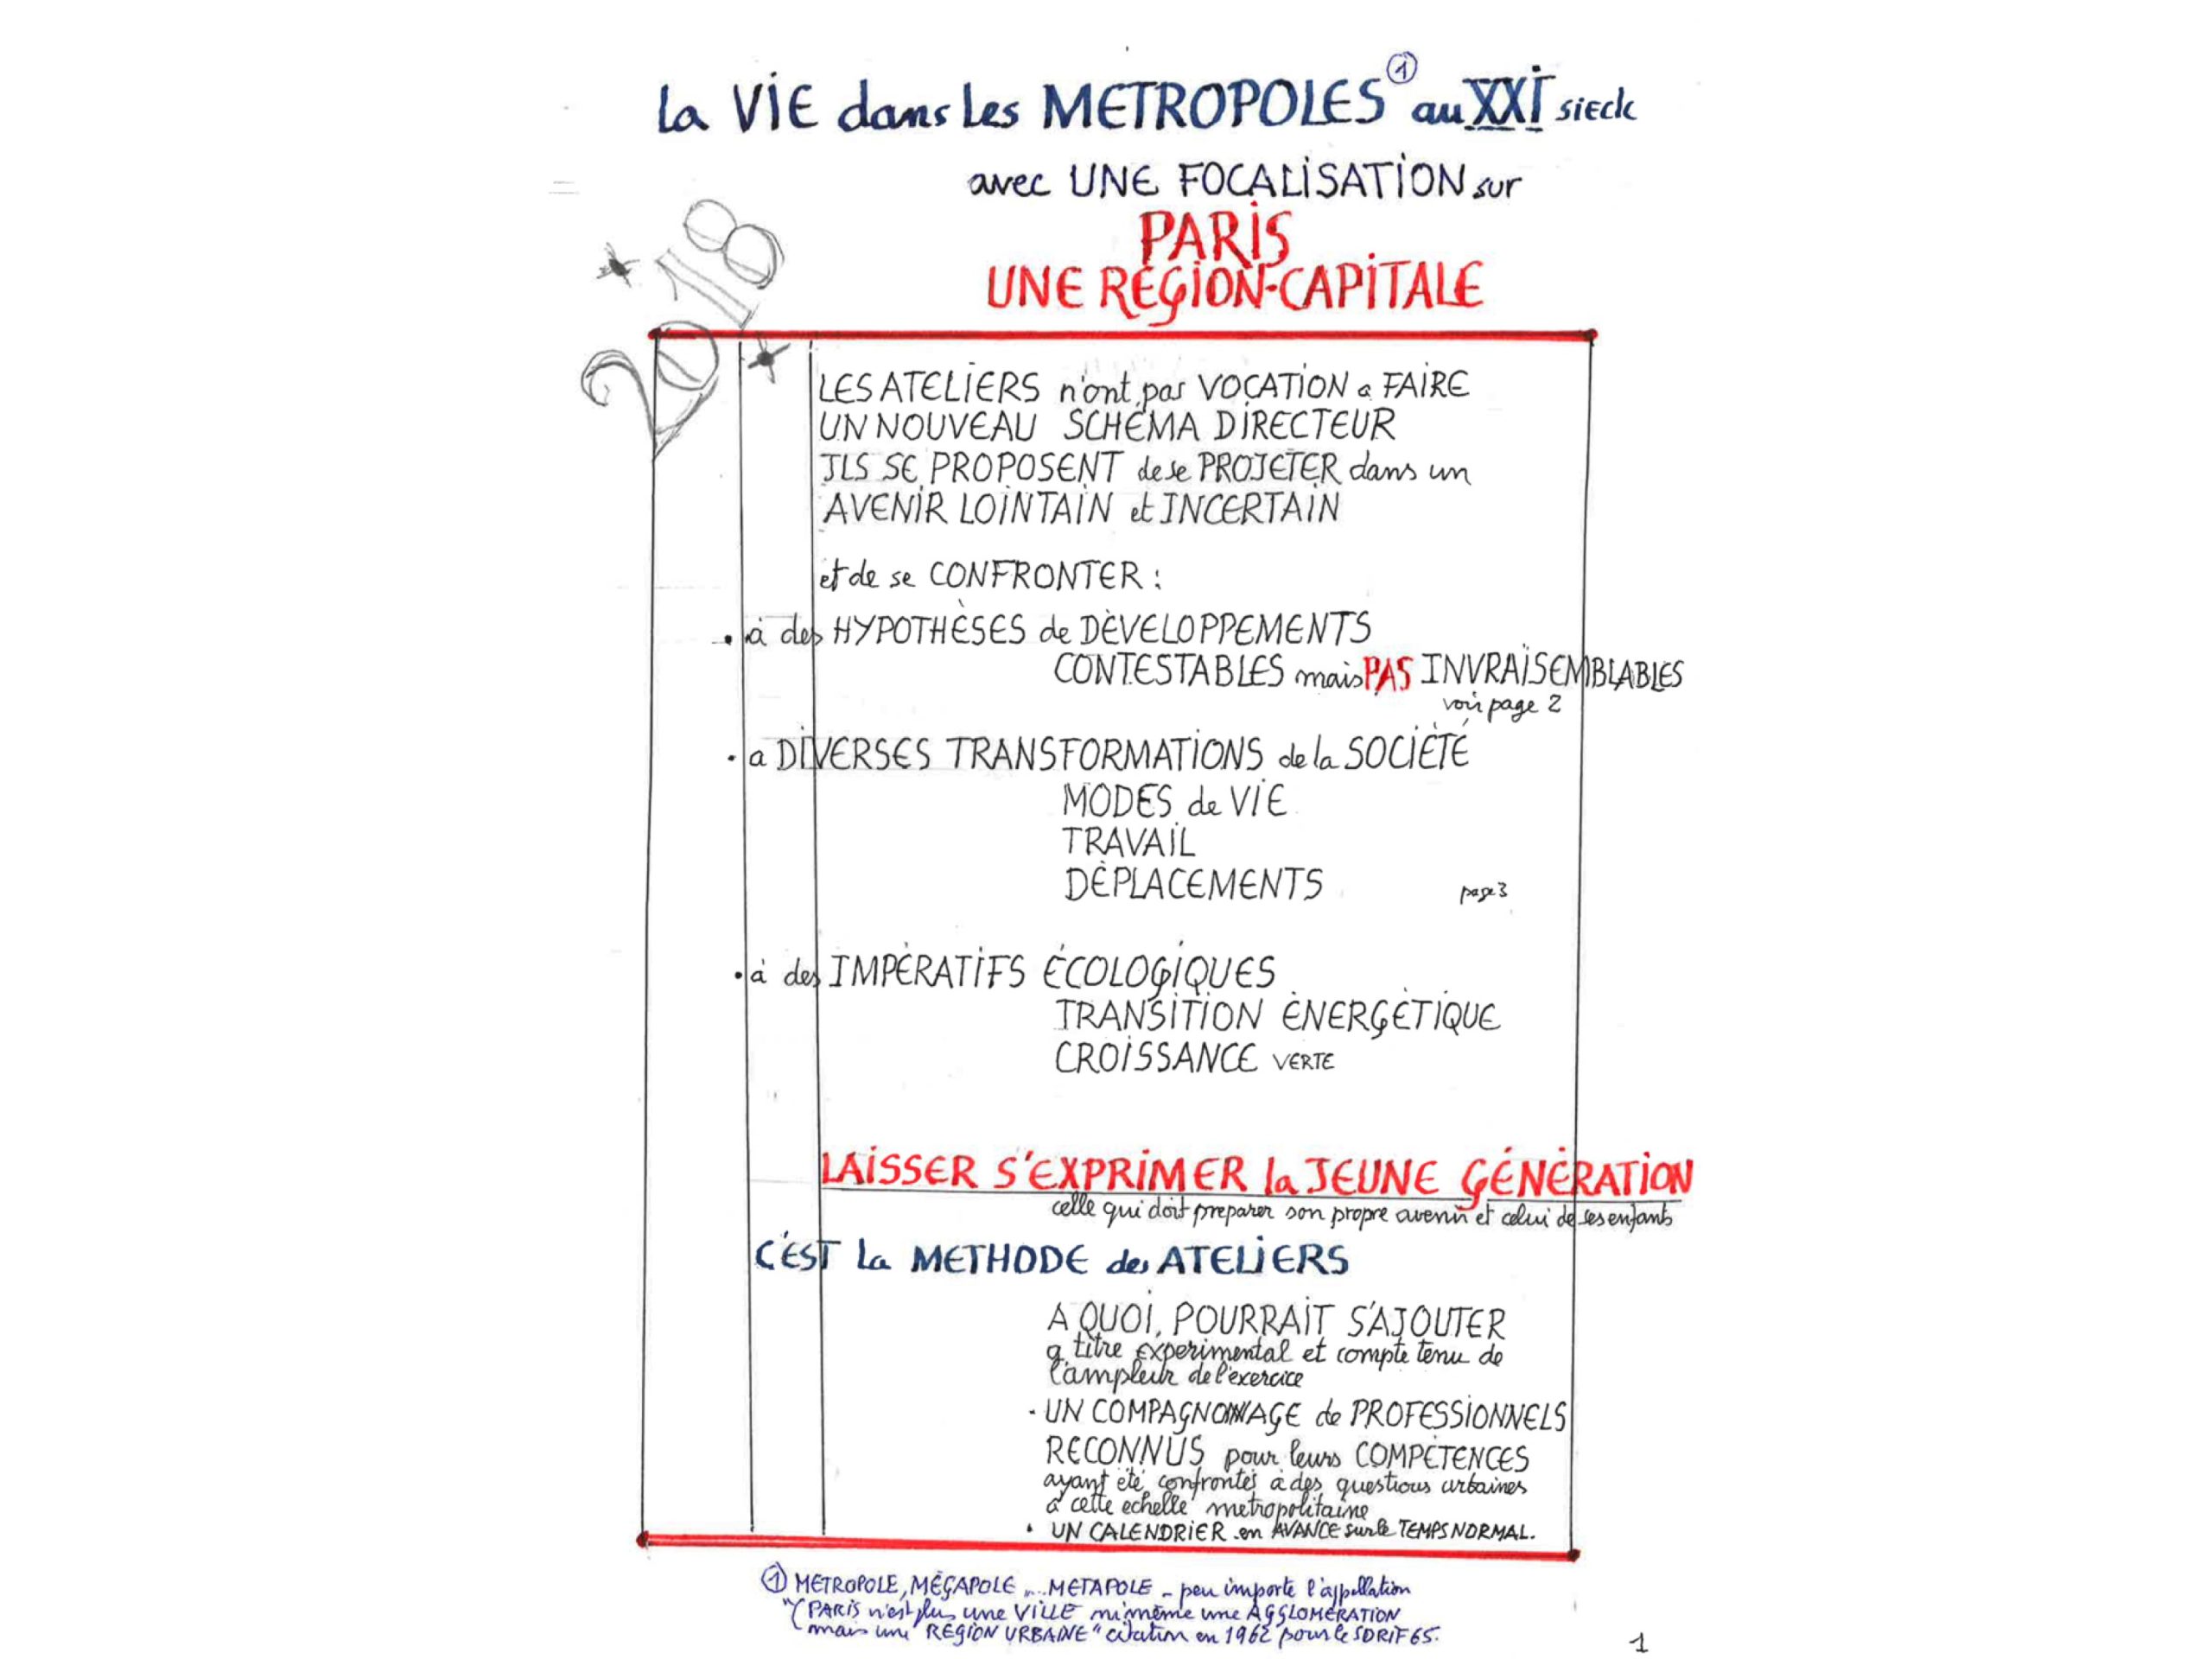 La ViE dans Les METROPOLES ① au XXI siecle
avec UNE FOCALiSATiON sur
PARiS
UNE RÉGiON-CAPiTALE
2018
LES ATELiERS n'ont pas VOCATiON a FAiRE
UN NOUVEAU SCHÉMA DiRECTEUR
ILS SE PROPOSENT de se PROJETER dans un
AVENiR LOiNTAiN et INCERTAiN
et de se CONFRONTER :
• à des HYPOTHÈSES de DÈVELOPPEMENTS
CONTESTABLES mais PAS INVRAiSEMBLABLES
voir page 2
• a DiVERSES TRANSFORMATiONS de la SOCiÉTÉ
MODES de ViE
TRAVAiL
DÉPLACEMENTS
page 3
• à des IMPÉRATiFS ÉCOLOGiQUES
TRANSiTiON ÉNERGÉTiQUE
CROiSSANCE VERTE
LAiSSER S'EXPRiMER la JEUNE GÉNÉRATiON
celle qui doit preparer son propre avenir et celui de ses enfants
C'EST La METHODE des ATELiERS
A QUOi, POURRAiT S'AJOUTER
a titre experimental et compte tenu de
l'ampleur de l'exercice
- UN COMPAGNONNAGE de PROFESSiONNELS
RECONNUS pour leurs COMPÉTENCES
ayant été confrontés à des questions urbaines
à cette echelle metropolitaine
• UN CALENDRiER en AVANCE sur le TEMPS NORMAL.
① METROPOLE, MÉGAPOLE ... METAPOLE - peu importe l'appellation
"(PARiS n'est plus une ViLLE ni même une AGGLOMÉRATION
mais une REGiON URBAiNE" citation en 1962 pour le SDRiF 65.
1